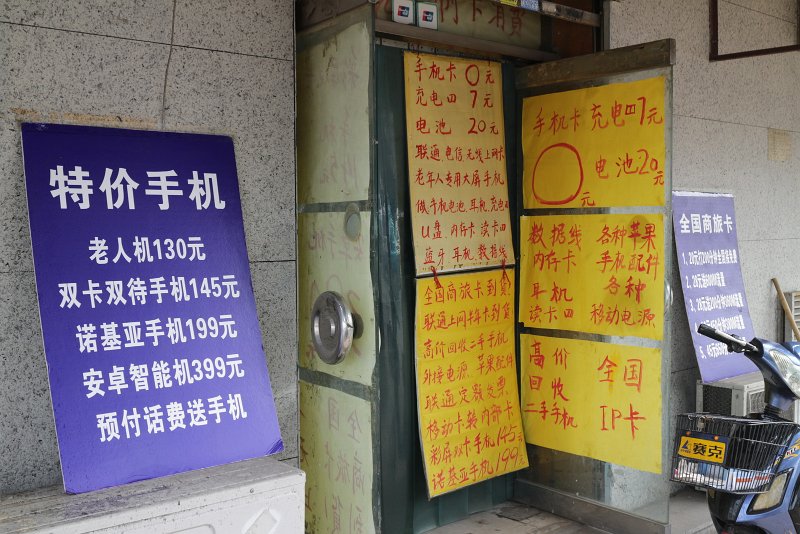 特价手机
老人机130元
双卡双待手机145元
诺基亚手机199元
安卓智能机399元
预付话费送手机
手机卡 0元
充电四 7元
电池 20元
联通.电信无线上网卡
老年人专用大屏手机
U盘 内存卡 读卡四
蓝牙 耳机 数据线
全国商旅卡到货!
联通上网半年卡到货
高价回收二手手机
外接电源 苹果配件
联通定额发票.
移动卡转内部卡
彩屏双卡手机145元
诺基亚手机199元
手机卡 充电四7元
0元
电池20元
数据线
内存卡
耳机
读卡四
各种苹果
手机配件
各种
移动电源
高价
回收
二手手机
全国
IP卡
全国商旅卡
赛克